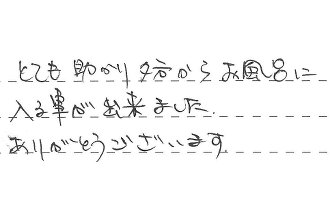 とても助かり夕方からお風呂に
入る事が出来ました。
ありがとうございます。